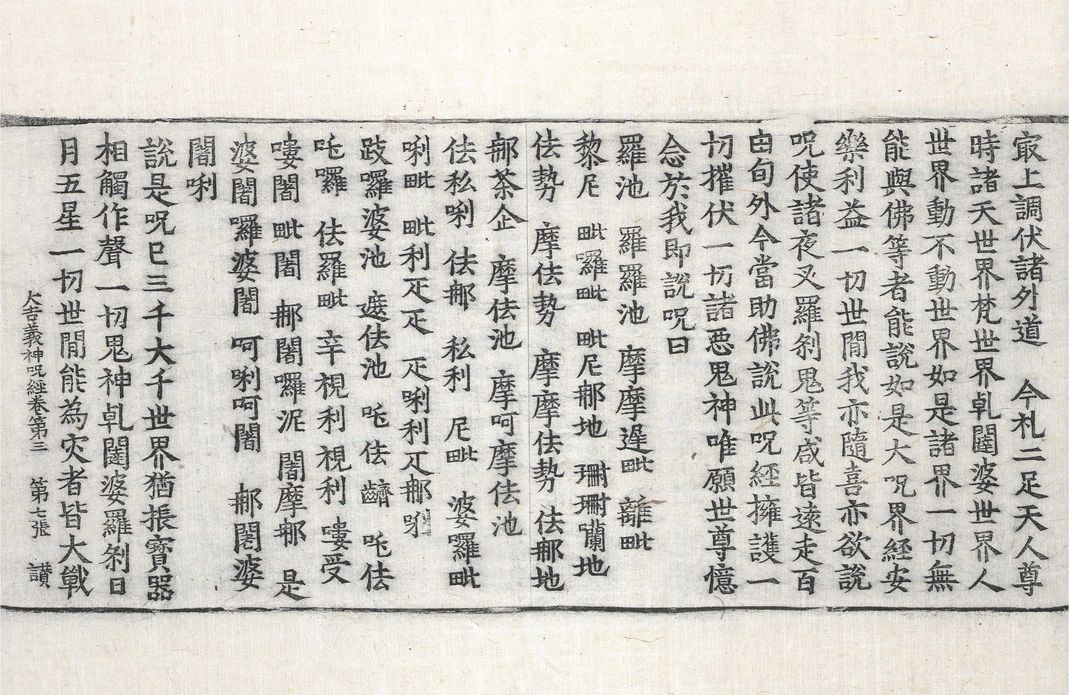 冣上調伏諸外道 今札二足天人尊
時諸天世界梵世界乹闥婆世界人
世界動不動世界如是諸界一切無
能與佛等者能說如是大呪界經安
樂利益一切世閒我亦隨喜亦欲說
呪使諸夜叉羅刹鬼等咸皆遠走百
由旬外今當助佛說此呪經擁護一
切摧伏一切諸惡鬼神唯願世尊憶
念於我即說呪曰
羅池 羅羅池 摩摩遲毗 離毗
黎尼 毗囉毗 毗尼郍地 珊珊蘭地
佉勢 摩佉勢 摩摩佉勢 佉郍地
郍茶企 摩佉池 摩呵摩佉池
佉私唎 佉郍 私利 尼毗 婆羅毗
唎毗 毗利疋疋 疋唎疋郍唎
跂羅婆池 遮佉池 吒佉齂 吒佉
吒囉 佉羅毗 辛視利視利 嘍受
嘍闇毗闇 郍闇囉泥 闇摩郍 是
婆闇囉婆闇 呵唎呵闇 郍闍婆
闇唎
說是呪已三千大千世界猶振寶器
相觸作聲一切鬼神乹闥婆羅刹日
月五星一切世閒能為灾者皆大戰
大吉義神呪經卷第三 第七張 讃